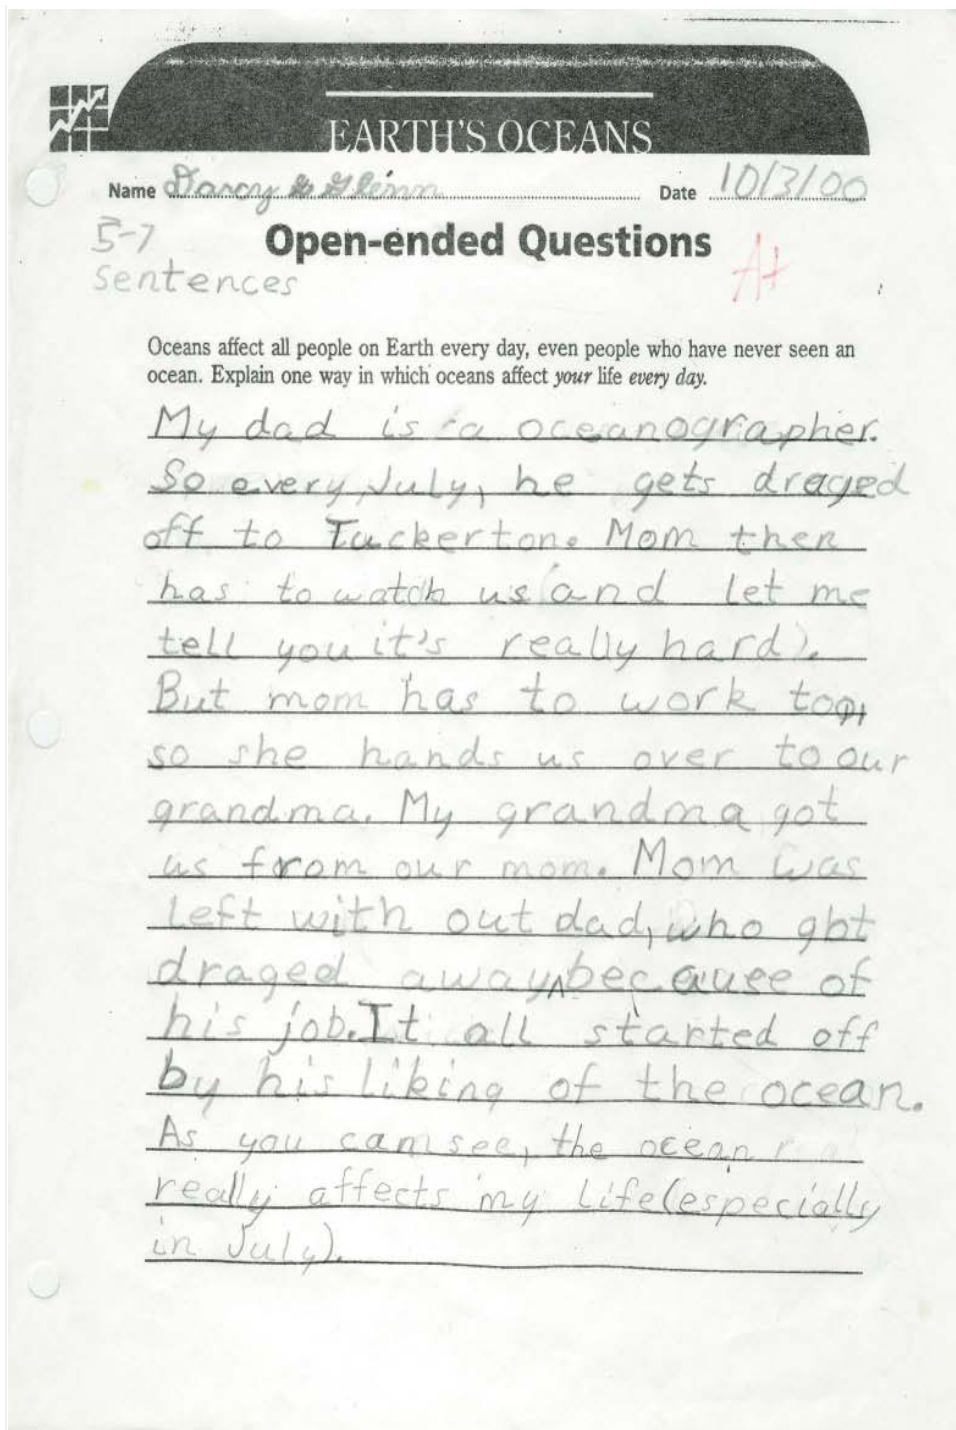 EARTH'S OCEANS
Name Darcy G Glenn Date 10/3/00
5-7
sentences
Open-ended Questions
A+
Oceans affect all people on Earth every day, even people who have never seen an
ocean. Explain one way in which oceans affect your life every day.
My dad is a oceanographer.
So every July, he gets draged
off to Tuckerton. Mom then
has to watch us (and let me
tell you it's really hard).
But mom has to work too,
so she hands us over to our
grandma. My grandma got
us from our mom. Mom was
left with out dad, who got
draged away, because of
his job. It all started off
by his liking of the ocean.
As you can see, the ocean
really affects my life (especially
in July).